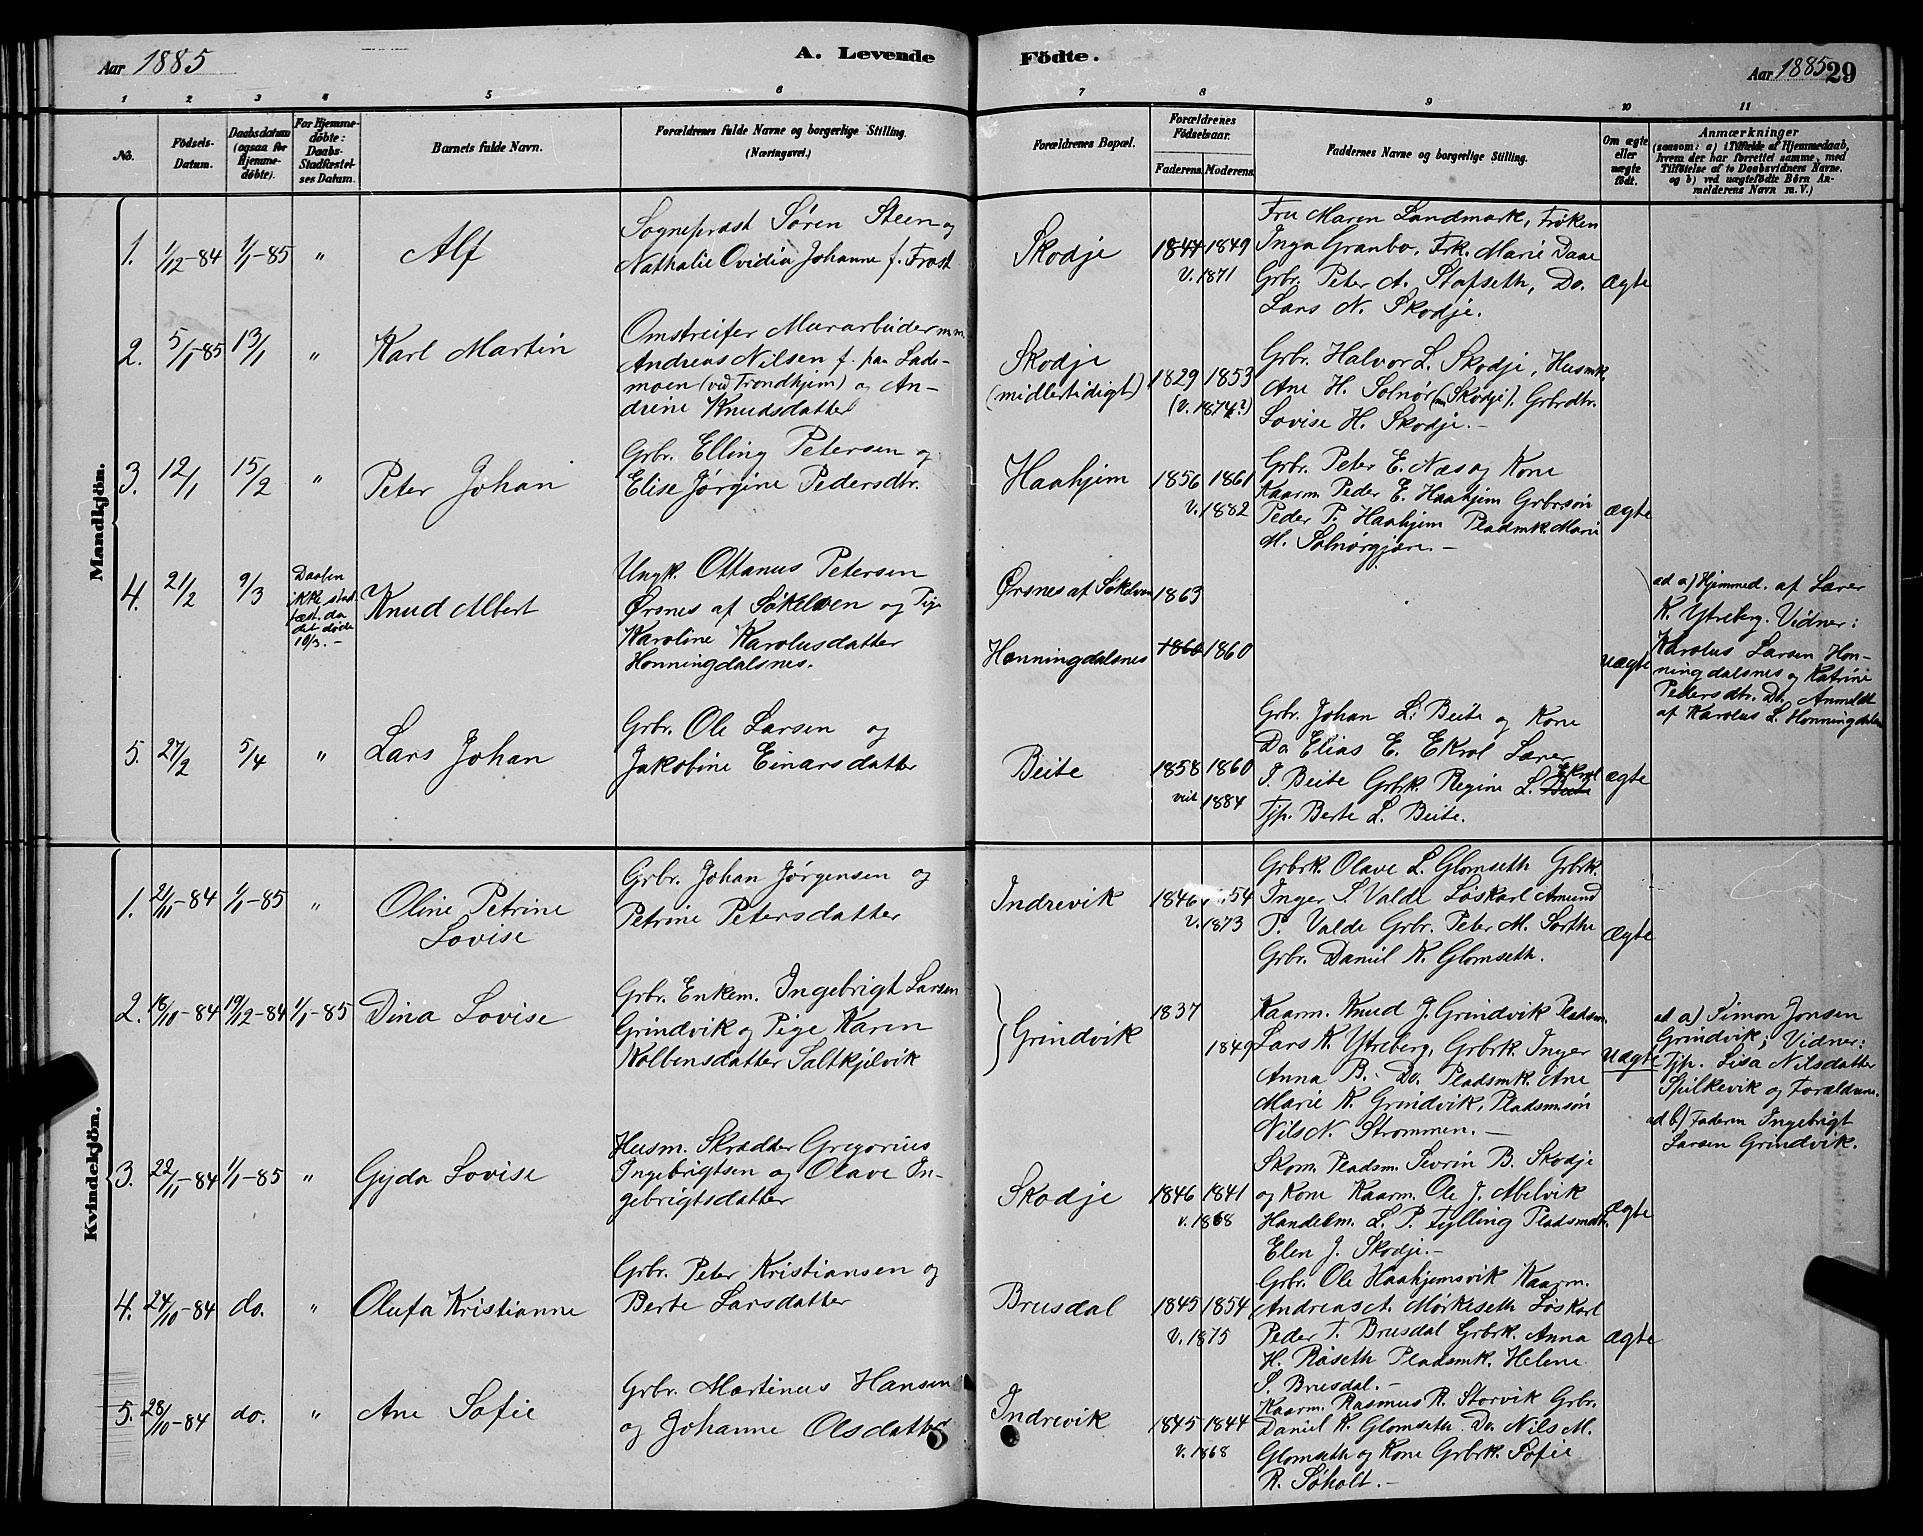 Aar 1885
A. Levende Födte.
Aar 1885
29
1 2 3 4 5 6 7 8 9 10 11
No.
Födsels-Datum.
Daabsdatum (ogsaa for Hjemme-döbte).
For Hjemme-döbte: Daabs-Stadfæstel-ses Datum.
Barnets fulde Navn.
Forældrenes fulde Navne og borgerlige Stilling.
(Næringsvei.)
Forældrenes Bopæl.
Forældrenes Födselsaar.
Faderens. Moderens.
Faddernes Navne og borgerlige Stilling.
Om ægte eller uægte födt.
Anmærkninger
(saasom: a) i Tilfælde af Hjemmedaab,
hvem der har forrettet samme, med
Tilföielse af to Daabsvidners Navne.
og b) ved uægtefödte Börn An-
melderens Navn m. V.)
Mandkjön.
1. 1/12-84 1/1-85 " Alf
Sognepræst Søren Steen og
Nathalie Ovidia Johanne f. Frost
Skodje
1844 1849
V. 1871
Fru Maren Landmark, Frøken
Inga Granbo, Frk. Marie Daae
Grbr. Peter A. Stafseth, Do.
Lars N. Skodje.
ægte
2. 5/1-85 13/1 " Karl Martin
Omstreifer Murarbeider m.m.
Andreas Nilsen f. paa Lade-
moen (ved Trondhjem) og An-
drine Knudsdatter
Skodje
(midlertidigt)
1829 1853
(V. 1874?)
Grbr. Halvor L. Skodje, Husmk.
Ane H. Solnør (Skodje). Grbrdtr.
Lovise H. Skodje.-
3. 12/1 15/2 " Peter Johan
Grbr. Elling Petersen og
Elise Jørgine Pedersdtr.
Haahjem
1856 1861
V. 1882
Grbr. Peter E. Næs og Kone
Kaarm. Peder E. Haahjem Grbrsøn
Peder P. Haahjem Pladsmk. Marie
M. Solnørgjøre.-
ægte
4. 21/2 9/3
Daaben
ikke stad-
fæst. da
det døde
10/3.-
Knud Albert
Ungk. Ottanus Petersen
Ørsnes af Søkelven og Pige
Karoline Karolusdatter
Honningdalsnes.
Ørsnes af Søkelven 1863
Honningdalsnes 1860 1860
uægte
ad a) Hjemmed. af Lærer
K. Ytreberg. Vidner:
Karolus Larsen Hon-
ningdalsnes og Katrine
Pedersdtr. Do. Anmeldt
af Karolus L. Honningdalsn.
5. 27/2 5/4 " Lars Johan
Grbr. Ole Larsen og
Jakobine Einarsdatter
Beite
1858 1860
viet 1884
Grbr. Johan L. Beite og Kone
Do Elias E. Ekrol Lærer
P. Beite Grbrk. Regine L. Beite Ekrol
Tjp. Berte L. Beite.
ægte
Kvindekjön.
1. 21/11-84 1/1-85 " Oline Petrine
Lovise
Grbr. Johan Jørgensen og
Petrine Petersdatter
Indrevik
1846 1854
V. 1873
Grbrk. Olave L. Glomseth Grbrk.
Inger S. Valde Løskarl Amund
P. Valde Grbr. Peter M. Sorthe
Grbr. Daniel K. Glomseth.
ægte
2. 18/10-84 19/12-84 1/1-85 Dina Lovise
Grbr. Enkem. Ingebrigt Larsen
Grindvik og Pige Karen
Kolbensdatter Saltkjelvik
Grindvik
1837
1849
Kaarm. Knud J. Grindvik Pladsm.
Lars K. Ytreberg, Grbrk. Inger
Anna B. Do. Pladsmk. Ane
Marie K. Grindvik, Pladsmsøn
Nils N. Strømmen.-
uægte
ad a) Simon Jonsen
Grindvik; Vidner:
Tjp. Lisa Nilsdatter
Spilkevik og Forældrene.
ad b) Faderen Ingebrigt
Larsen Grindvik.
3. 22/11-84 1/1-85 " Gyda Lovise
Husm. Skrædder Gregorius
Ingebrigtsen og Olave In-
gebrigtsdatter
Skodje
1846 1841
v. 1868
Skom. Pladsm. Sevrin B. Skodje
og Kone Kaarm. Ole J. Abelvik
Handelsm. L. P. Fylling Pladsmdtr.
Elen J. Skodje.-
ægte
4. 24/10-84 do. " Olufa Kristianne
Grbr. Peter Kristiansen og
Berte Larsdatter
Brusdal
1845 1854
V. 1875
Grbr. Ole Haahjemsvik Kaarm.
Andreas A. Mørkeseth Løskarl
Peder T. Brusdal Grbrk. Anna
H. Røseth Pladsmk. Helene
S. Brusdal.-
ægte
5. 28/10-84 do. " Ane Sofie
Grbr. Martinus Hansen
og Johanne Olsdatter
Indrevik
1845 1844
V. 1868
Kaarm. Rasmus R. Storvik Grbr.
Daniel K. Glomseth Do. Nils M.
Glomseth og Kone Grbrk. Sofie
R. Søholt.-